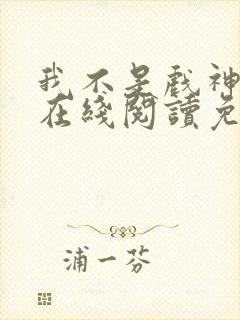 我不是戏神
在綫閱讀免
浦一芬